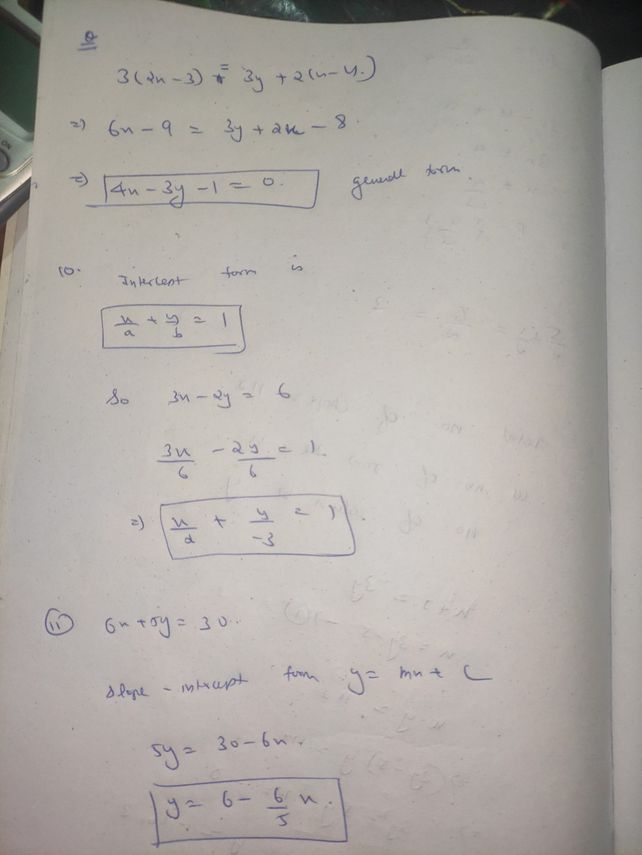 Q
3(2x-3) = 3y + 2(x-4)
=) 6x - 9 = 3y + 2x - 8
=) 4x - 3y - 1 = 0. general form.
10. Intercept form is
x/a + y/b = 1
So 3x - 2y = 6
3x/6 - 2y/6 = 1
=) x/2 + y/-3 = 1
(11) 6x + 5y = 30.
Slope - intercept form y = mx + C
5y = 30 - 6x.
y = 6 - 6/5 x.